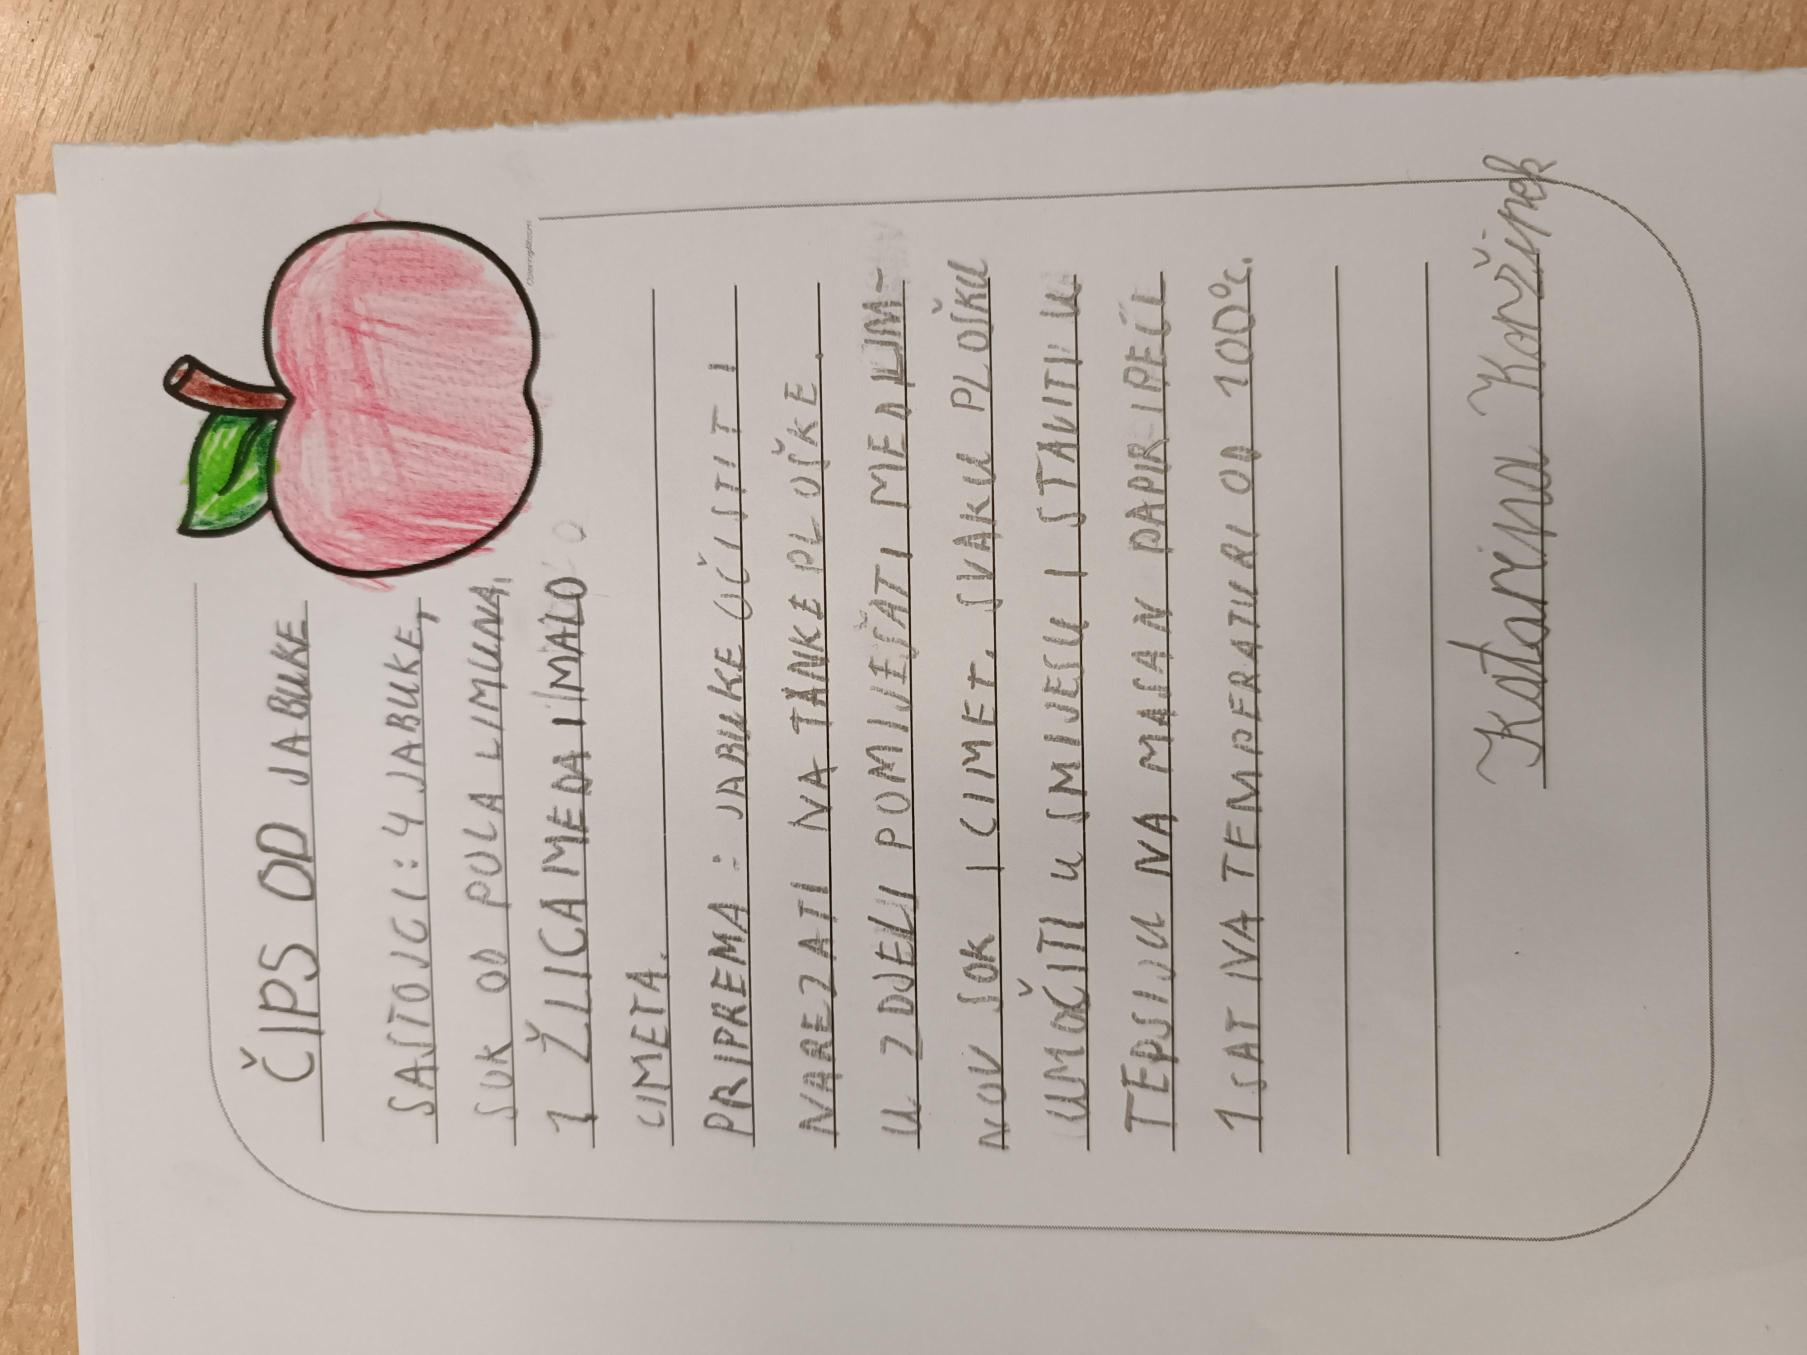 ČIPS OD JABUKE
SASTOJCI: 4 JABUKE,
SOK OD POLA LIMUNA,
1 ŽLICA MEDA I MALO
CIMETA.
PRIPREMA: JABUKE OČISTIT I
NAREZATI NA TANKE PLOŠKE.
U ZDJELI POMIJEŠATI MED LIM-
NOV SOK I CIMET. SVAKU PLOŠKU
UMOČITI U SMIJESU I STAVITI U
TEPSIJU NA MASAN PAPIR I PEĆI
1 SAT NA TEMPERATURI OD 100°C.
Katarina Koržinek